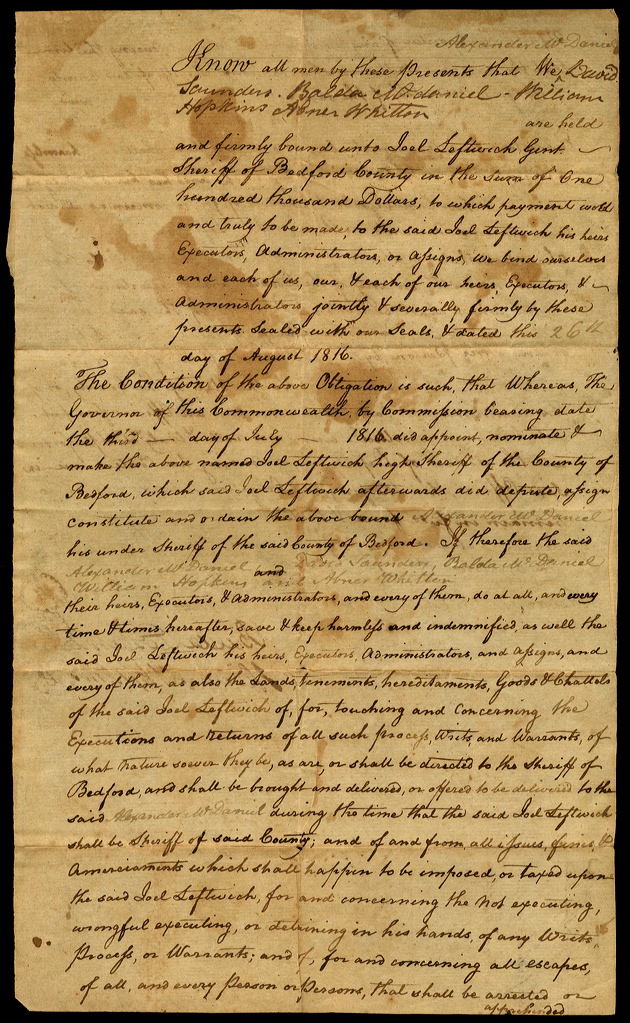 Alexander Mc Daniel
Know all men by these presents that We, David
Saunders. Balda Mc.daniel - William
Hopkins Abner Whitton
are held
and firmly bound unto Joel Leftwich Gent.
Sheriff of Bedford County in the sum of One
hundred thousand Dollars, to which payment well
and truly to be made, to the said Joel Leftwich his heirs
Executors, Administrators, or Assigns, we bind ourselves
and each of us, our, & each of our heirs, Executors, &
Administrators jointly & severally firmly by these
presents. Sealed with our Seals, & dated this 26th
day of August 1816.
The Condition of the above Obligation is such, that Whereas, The
Governor of this Commonwealth, by Commission bearing date
the third — day of July — 1816 did appoint, nominate &
make the above named Joel Leftwich high Sheriff of the County of
Bedford, which said Joel Leftwich afterwards did depute, assign
constitute and ordain the above bound Alexander Mc Daniel
his under Sheriff of the said County of Bedford. If therefore the said
Alexander Mc Daniel and David Saunders, Balda Mc. Daniel
William Hopkins and Abner Whitton
their heirs, Executors, & Administrators, and every of them, do at all, and every
time & times hereafter, save & keep harmless and indemnified, as well the
said Joel Leftwich his heirs, Executors, Administrators, and Assigns, and
every of them, as also the Lands, tenements, hereditaments, Goods & Chattels
of the said Joel Leftwich of, for, touching and concerning the
Executions and returns of all such process, Writs, and Warrants, of
what nature soever they be, as are, or shall be directed to the Sheriff of
Bedford, and shall be brought and delivered, or offered to be delivered to the
said Alexander Mc Daniel during the time that the said Joel Leftwich
shall be Sheriff of said County; and of and from all issues, fines, &
Amerciaments which shall happen to be imposed, or taxed upon
the said Joel Leftwich, for and concerning the not executing,
wrongful executing, or detaining in his hands, of any Writs,
Process, or Warrants; and of, for and concerning all escapes,
of all, and every Person or Persons, that shall be arrested or
apprehended